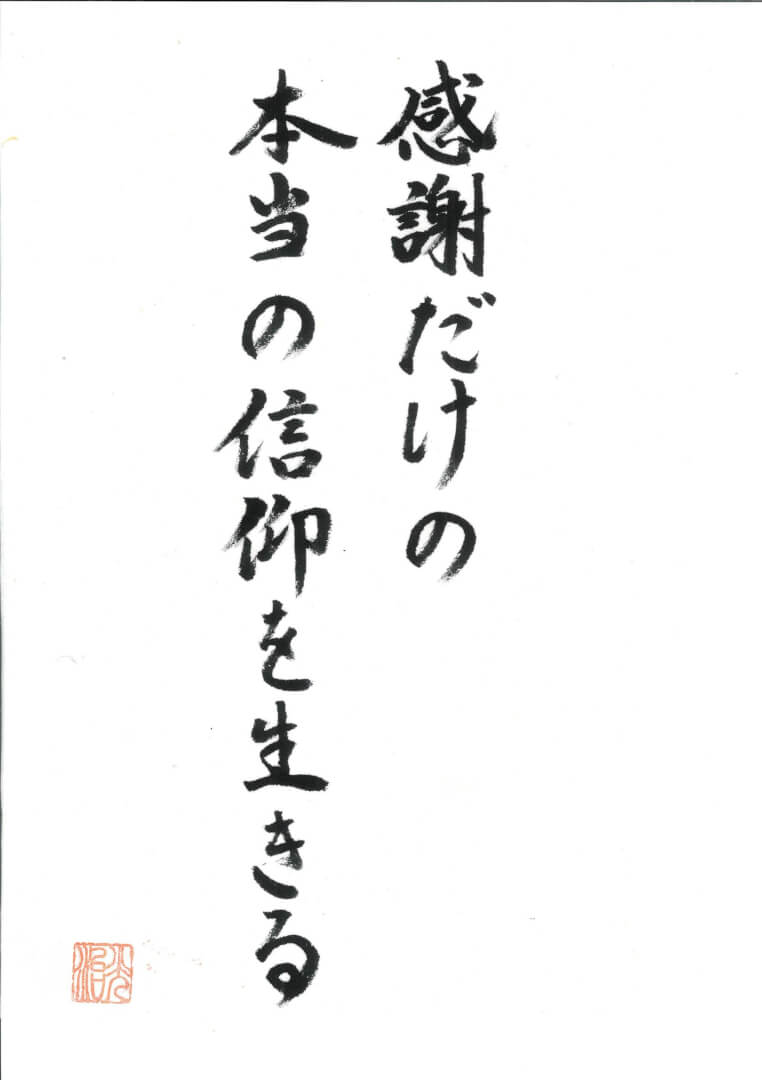 感謝だけの
本当の信仰を生きる